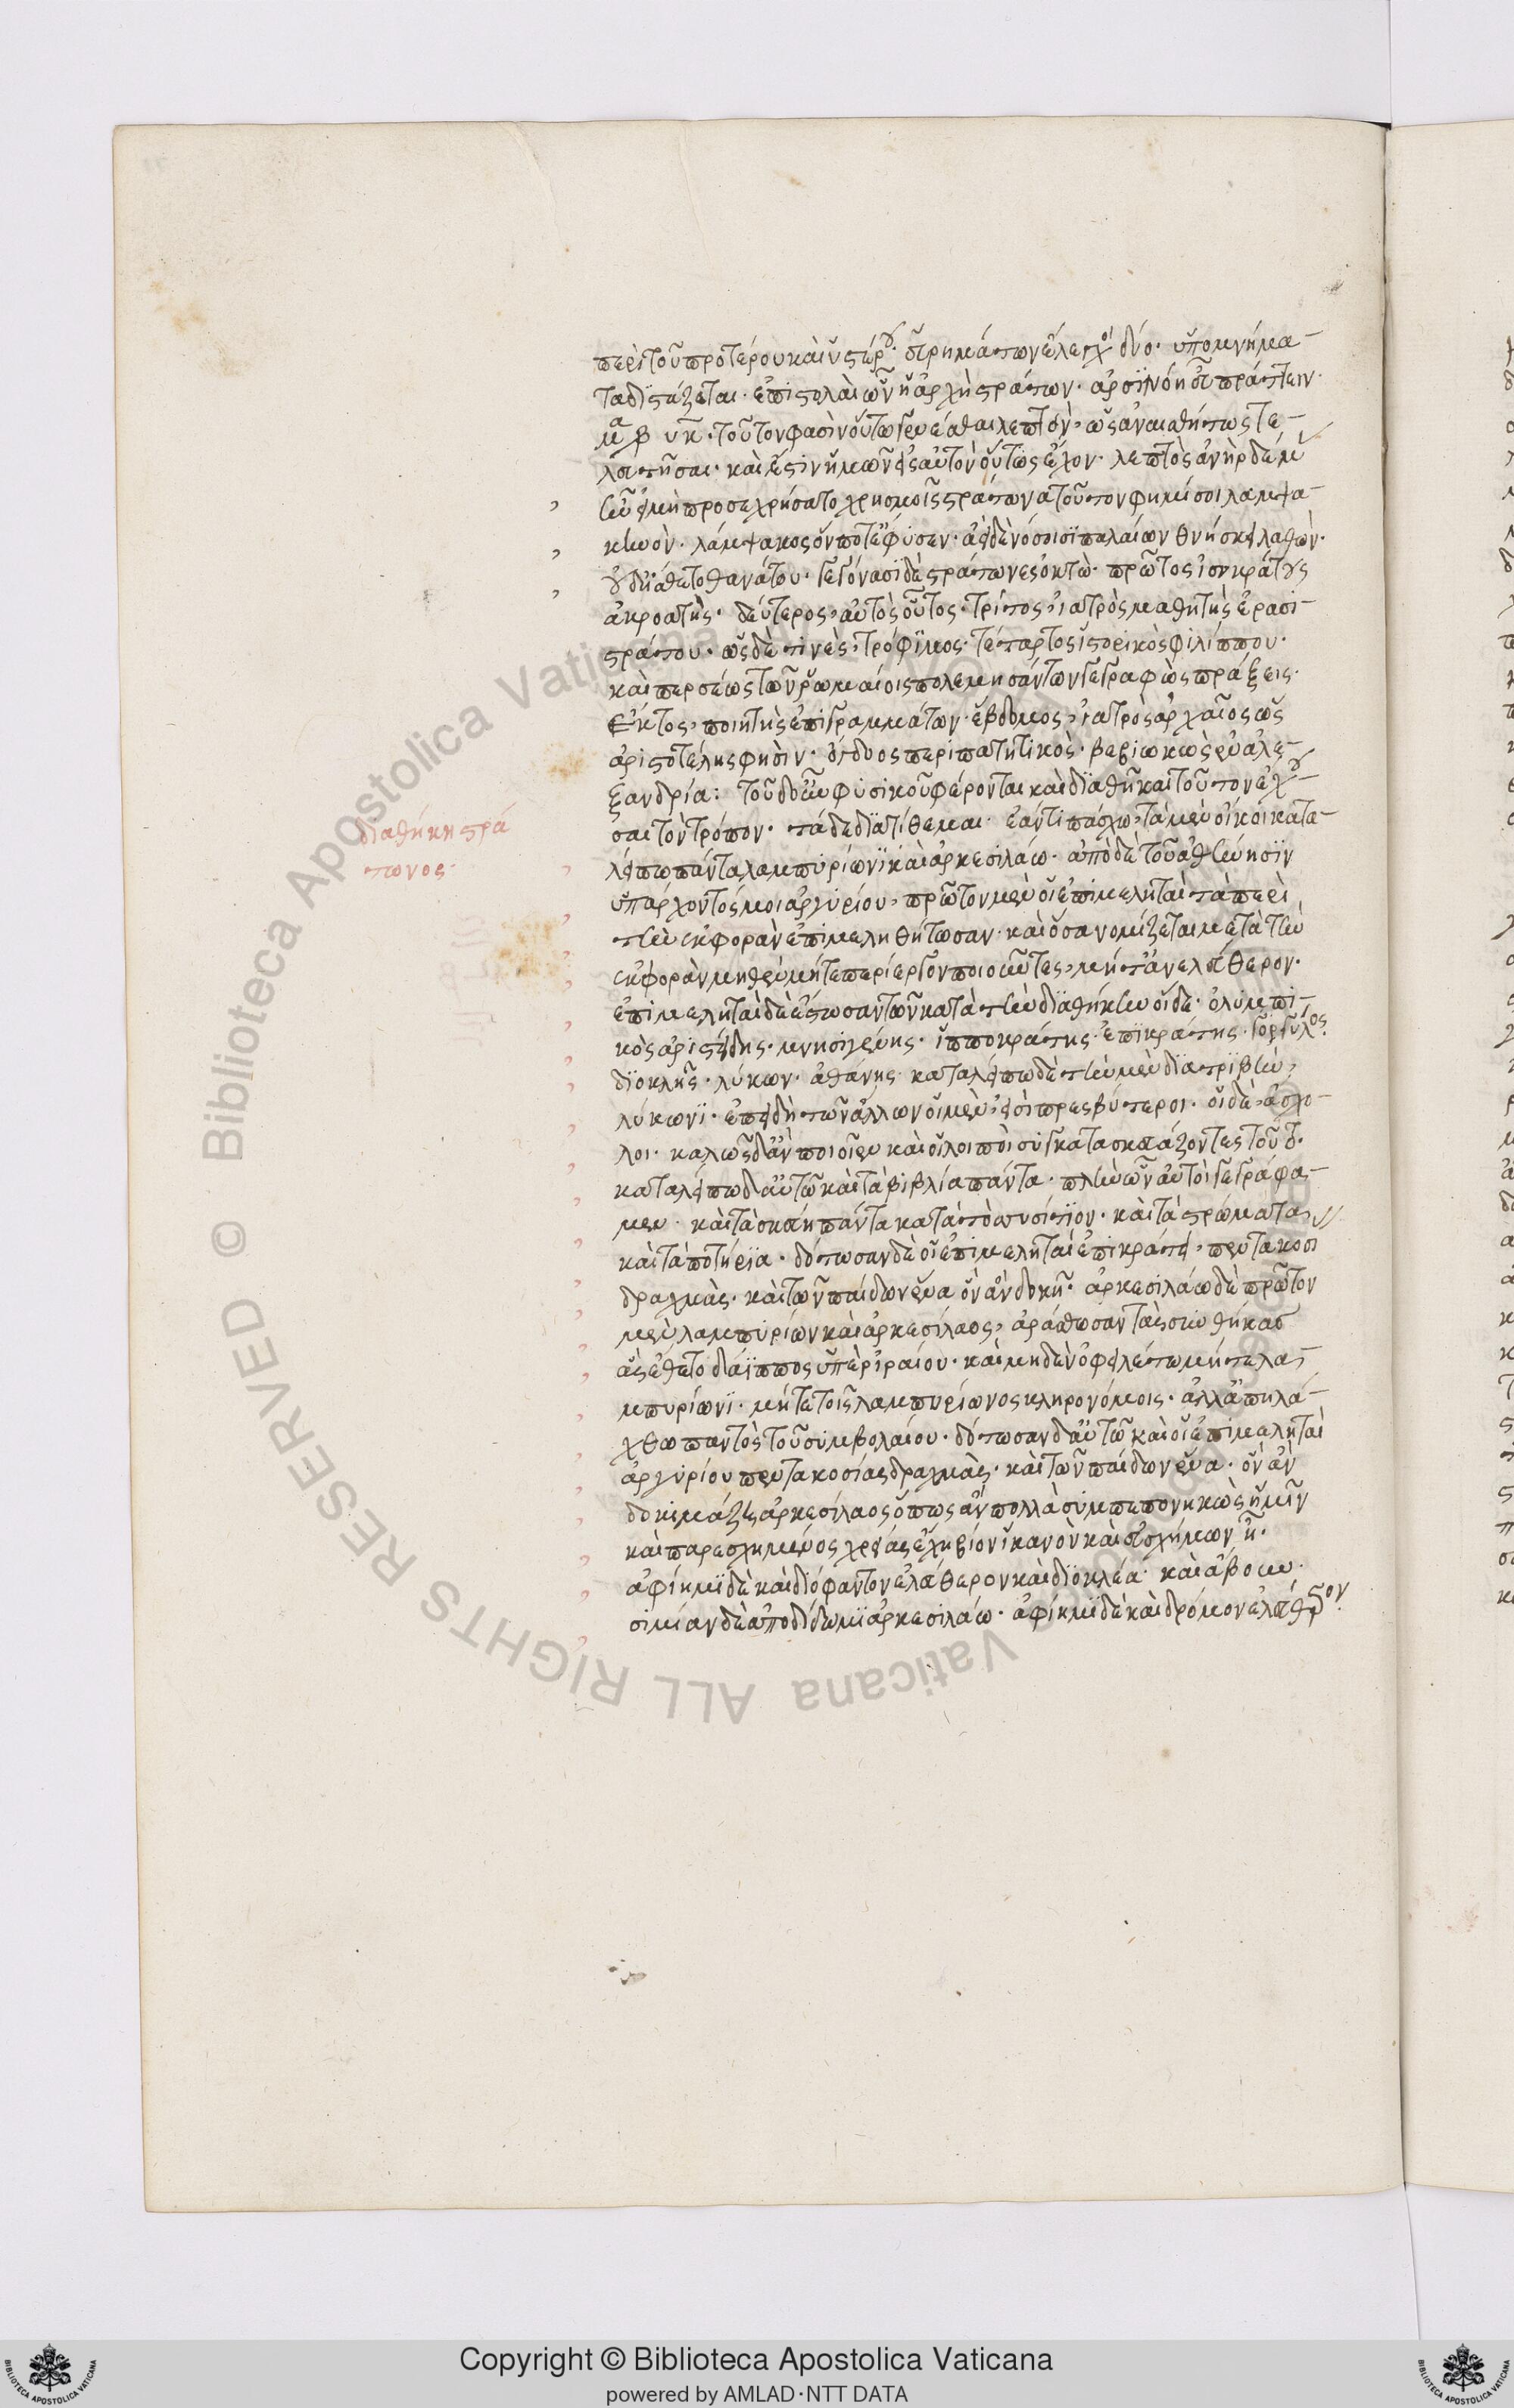 περὶ τοῦ προτέρου καὶ ὑστέρου. εὑρημάτων ἔλεγχοι δύο. ὑπομνήμα-
τα διστάζεται. ἐπιστολαὶ ὧν ἡ ἀρχὴ στράτων. ἀρσινόῃ εὖ πράττειν.
τοῦτον φασὶν οὕτω γενέσθαι λεπτὸν, ὡς ἀναισθήτως τε-
λευτῆσαι. καὶ ἔστιν ἡμῶν εἰς αὐτὸν οὕτως ἔχον. λεπτὸς ἀνὴρ δέμ
προσεχρήσατο χρησμοῖς στράτωνα τοῦτον φημί σοι λαμψα-
κηνὸν. λάμψακος ὅν ποτ' ἔφυσεν. ἀεὶ δὲ νόσοισι παλαίων θνήσκει λαθὼν.
γεγόνασι δὲ στράτωνες ὀκτώ. πρῶτος ἰσοκράτους
ἀκροατὴς. δεύτερος, αὐτὸς οὗτος. τρίτος, ἰατρὸς μαθητὴς ἐρασι-
στράτου. ὡς δὲ τινὲς, τρόφιμος. τέταρτος ἱστορικὸς φιλίππου.
καὶ περσέως τῶν ῥωμαίοις πολεμησάντων γεγραφὼς πράξεις.
ἕκτος, ποιητὴς ἐπιγραμμάτων. ἕβδομος, ἰατρὸς ἀρχαῖος ὡς
ἀριστοτέλης φησὶν. ὄγδοος περιπατητικὸς. βεβιωκὼς ἐν ἀλε-
ξανδρία: τοῦ δ' οὖν φυσικοῦ φέρονται καὶ διαθῆκαι τοῦτον ἔχου-
σαι τὸν τρόπον. τάδε διατίθεμαι. ἐάν τι πάσχω, τὰ μὲν οἴκοι κατα-
λείπω πάντα λαμπυρίωνι καὶ ἀρκεσιλάω. ἀπὸ δὲ τοῦ ἀθήνησιν
ὑπάρχοντός μοι ἀργυρίου, πρῶτον μὲν οἱ ἐπιμεληταὶ τὰ περὶ
τὴν ἐκφορὰν ἐπιμεληθήτωσαν. καὶ ὅσα νομίζεται μετὰ τὴν
ἐκφορὰν μηθὲν μήτε περίεργον ποιοῦντες, μήτ' ἀνελεύθερον.
ἐπιμεληταὶ δὲ ἔστωσαν τῶν κατὰ τὴν διαθήκην οἵδε. ὀλύμπι-
κὸς ἀριστείδης. μνησιγένης. ἱπποκράτης. ἐπικράτης. γόργυλος.
διοκλῆς. λύκων. ἀθάνης. καταλείπω δὲ τὴν μὲν διατριβὴν,
λύκωνι. ἐπειδὴ τῶν ἄλλων οἱ μὲν, εἰσὶ πρεσβύτεροι. οἱ δὲ, ἄσχο-
λοι. καλῶς δ' ἂν ποιοῖεν καὶ οἱ λοιποὶ συγκατασκευάζοντες τούτω.
καταλείπω δ' αὐτῶ καὶ τὰ βιβλία πάντα. πλὴν ὧν αὐτοὶ γεγράφα-
μεν. καὶ τὰ σκεύη πάντα κατὰ τὸ συσσίτιον. καὶ τὰ στρώματα,
καὶ τὰ ποτήρια. δότωσαν δὲ οἱ ἐπιμεληταὶ ἐπικράτει, πεντακοσι
δραχμὰς. καὶ τῶν παίδων ἕνα ὃν ἂν δοκῆ. ἀρκεσιλάω δὲ πρῶτον
μὲν λαμπυρίων καὶ ἀρκεσίλαος, ἀράσθωσαν τὰς συνθήκας
ἃς ἔθετο δάϊππος ὑπὲρ ἱραίου. καὶ μηδὲν ὀφειλέτω μήτε λα-
μπυρίωνι. μήτε τοῖς λαμπυρίωνος κληρονόμοις. ἀλλ' ἀπηλά-
χθω παντὸς τοῦ συμβολαίου. δότωσαν δ' αὐτῶ καὶ οἱ ἐπιμεληταὶ
ἀργυρίου πεντακοσίας δραχμὰς. καὶ τῶν παίδων ἕνα. ὃν ἂν
δοκιμάζει ἀρκεσίλαος ὅπως ἂν πολλὰ συμπεπονηκὼς ἡμῖν
καὶ παρεσχημένος χρείας ἔχη βίον ἱκανὸν καὶ εὐσχήμων ῆ.
ἀφίημι δὲ καὶ διόφαντον ἐλεύθερον καὶ διοκλέα. καὶ ἄβουν.
σιμίαν δὲ ἀποδίδωμι ἀρκεσιλάω. ἀφίημι δὲ καὶ δρόμον ἐλεύθερον.
διαθήκη στρά
τωνος.
Copyright © Biblioteca Apostolica Vaticana
powered by AMLAD·NTT DATA